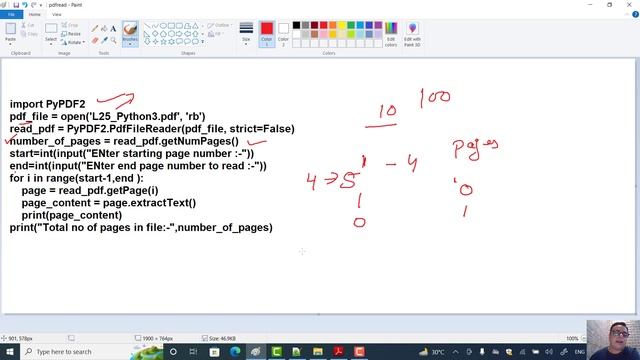 pdfread - Paint
File
Home
View
Paste
Cut
Copy
Clipboard
Select
Crop
Resize
Rotate
Image
Tools
Brushes
Outline
Fill
Shapes
Size
Color 1
Color 2
Colors
Edit colors
Edit with Paint 3D
import PyPDF2
pdf_file = open('L25_Python3.pdf', 'rb')
read_pdf = PyPDF2.PdfFileReader(pdf_file, strict=False)
number_of_pages = read_pdf.getNumPages()
start=int(input("ENter starting page number :-"))
end=int(input("ENter end page number to read :-"))
for i in range(start-1,end ):
page = read_pdf.getPage(i)
page_content = page.extractText()
print(page_content)
print("Total no of pages in file:-",number_of_pages)
10 100
1 - 4 pages
4 → 5 0
1 1
0
901, 578px
1900 × 764px
Size: 46.9KB
100%
Type here to search
30°C